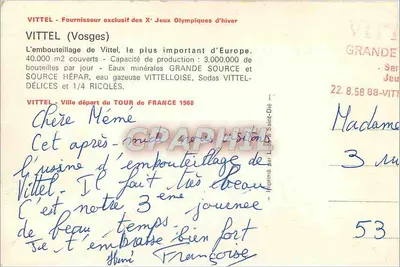 VITTEL - Fournisseur exclusif des Xe Jeux Olympiques d'hiver
VITTEL (Vosges)
L'embouteillage de Vittel, le plus important d'Europe.
40.000 m2 couverts - Capacité de production : 3.000.000 de
bouteilles par jour - Eaux minérales GRANDE SOURCE et
SOURCE HÉPAR, eau gazeuse VITTELLOISE, Sodas VITTEL-
DÉLICES et 1/4 RICQLÈS.
VITTEL - Ville départ du TOUR de FRANCE 1968
Chère Mémé
Cet après-midi nous visitons
l'usine d'embouteillage de
Vittel. Il fait très beau
C'est notre 3 eme journée
de beau temps.
Je t'embrasse bien fort
Françoise
VITT
GRANDE
22.8.58 88-VITT
Madame
3 ru
53